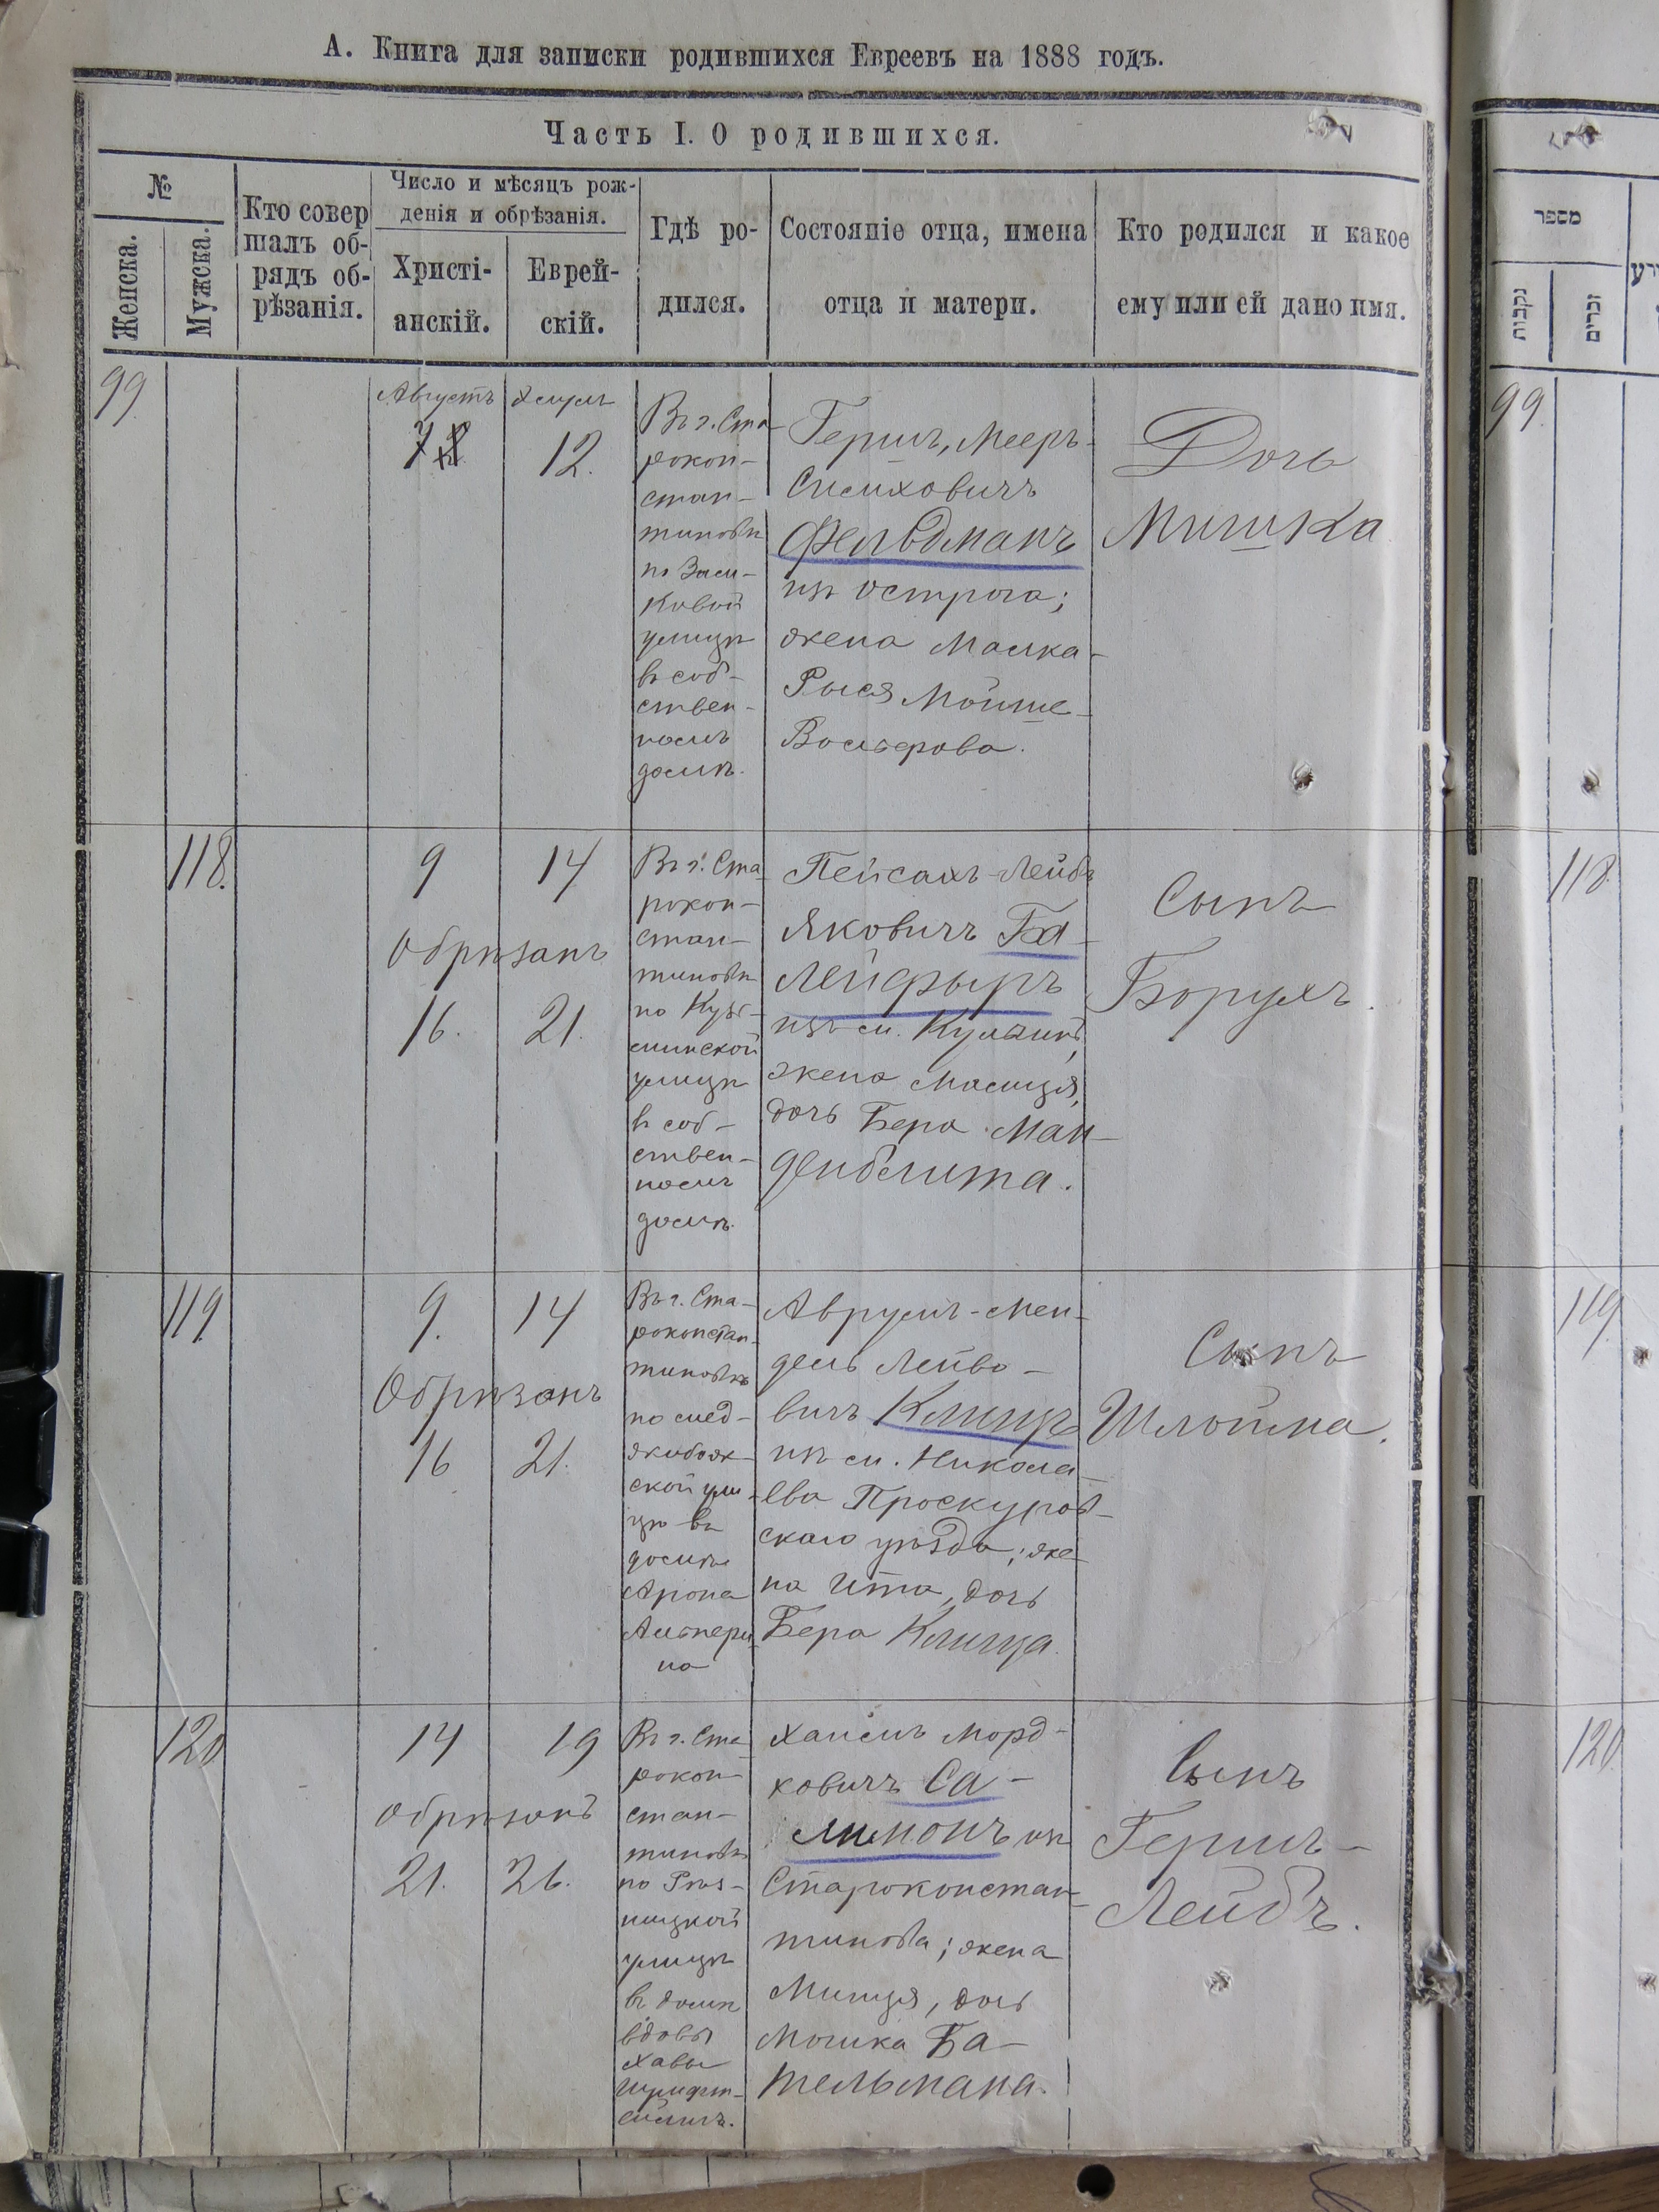 А. Книга для записки родившихся Евреевъ на 1888 годъ.
Часть I. О родившихся.
№
Женска.
Мужска.
Кто совер
шалъ об-
рядъ об-
рѣзанія.
Число и мѣсяцъ рож-
денія и обрѣзанія.
Христі-
анскій.
Еврей-
скій.
Гдѣ ро-
дился.
Состояніе отца, имена
отца и матери.
Кто родился и какое
ему или ей дано имя.
מספר
נקבות
זכרים
99.
Августъ
7
12.
Въ г. Ста-
рокон-
стан-
тиновѣ
по
улицѣ
въ соб-
ствен-
номъ
домѣ.
Гершъ, Мееръ-
Фельдманъ
изъ Острога;
жена Малка-
Рыся Мойше-
Вольфова.
Дочь
Мишка
99.
118.
9
14
Обрѣзанъ
16.
21.
Въ г. Ста-
рокон-
стан-
тиновѣ
по Кузь-
минской
улицѣ
въ соб-
ствен-
номъ
домѣ.
Пейсахъ-Лейбъ
Яковичъ Ба-
лейфыръ
изъ м. Кульчинъ,
жена Маиця,
дочь Бера Ман-
денблита.
Сынъ
Борухъ.
118.
119.
9.
14
Обрѣзанъ
16
21.
Въ г. Ста-
роконстан-
тиновѣ
по мед-
жибож-
ской ули-
цѣ въ
домѣ
Арона
Альпери
на
Аврумъ-Мен-
дель Лейбо-
вичъ Клицъ
изъ м. Никола-
ева Проскуров-
скаго уѣзда; же-
на Ита, дочь
Бера Клица.
Сынъ
Шлойма.
119.
120
14
19
Обрѣзанъ
21.
26.
Въ г. Ста-
рокон-
стан-
тиновѣ
по
улицѣ
въ домѣ
вдовы
Хавы
Хаимъ Морд-
ковичъ Са-
лимонъ изъ
Староконстан-
тинова; жена
Миндя, дочь
Мошка Ба-
тельмана.
Сынъ
Гершъ-
Лейбъ.
120.